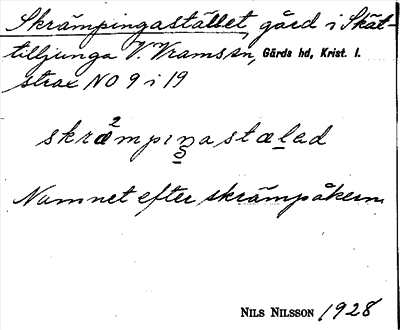 Skrämpingastället, gård i Skät-
tilljunga V. Vramsn, Gärds hd, Krist. l.
strax NO 9 i 19
skræ²mpıŋastælad
Namnet efter skrämpåkern.
NILS NILSSON 1928